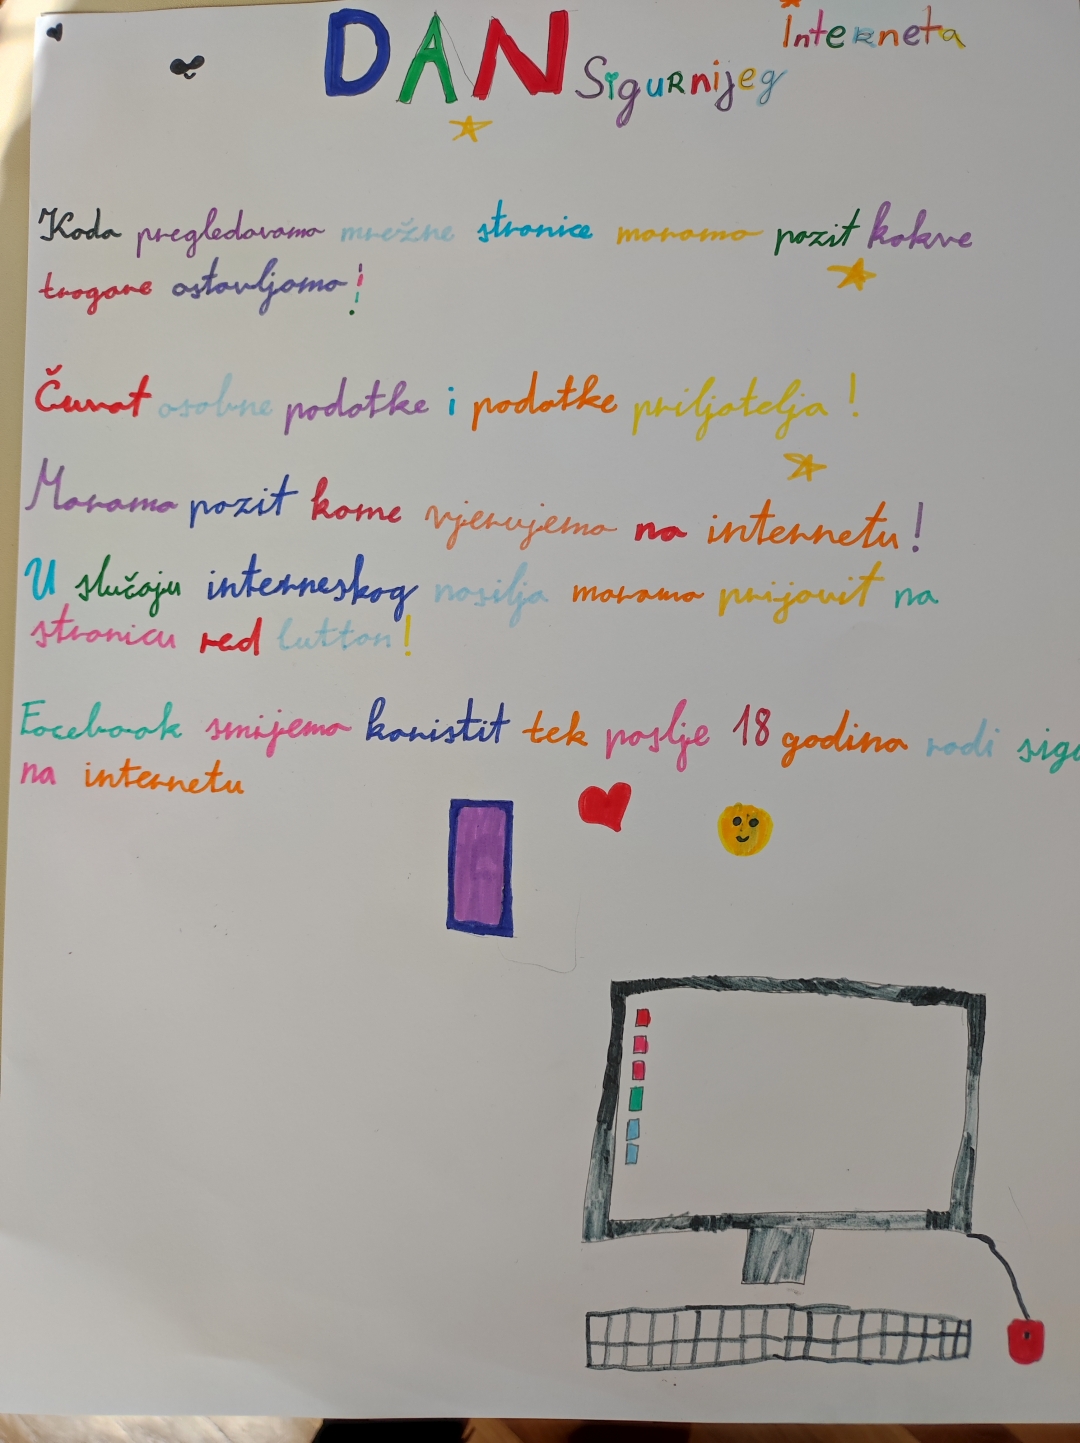 DAN Sigurnijeg Interneta
Kada pregledavamo mrežne stranice moramo pazit kakve
tragove ostavljamo!
Čuvat osobne podatke i podatke priljatelja!
Moramo pazit kome vjerujemo na internetu!
U slučaju interneskog nasilja moramo prijavit na
stranicu red button!
Facebook smijemo koristit tek poslje 18 godina radi
na internetu